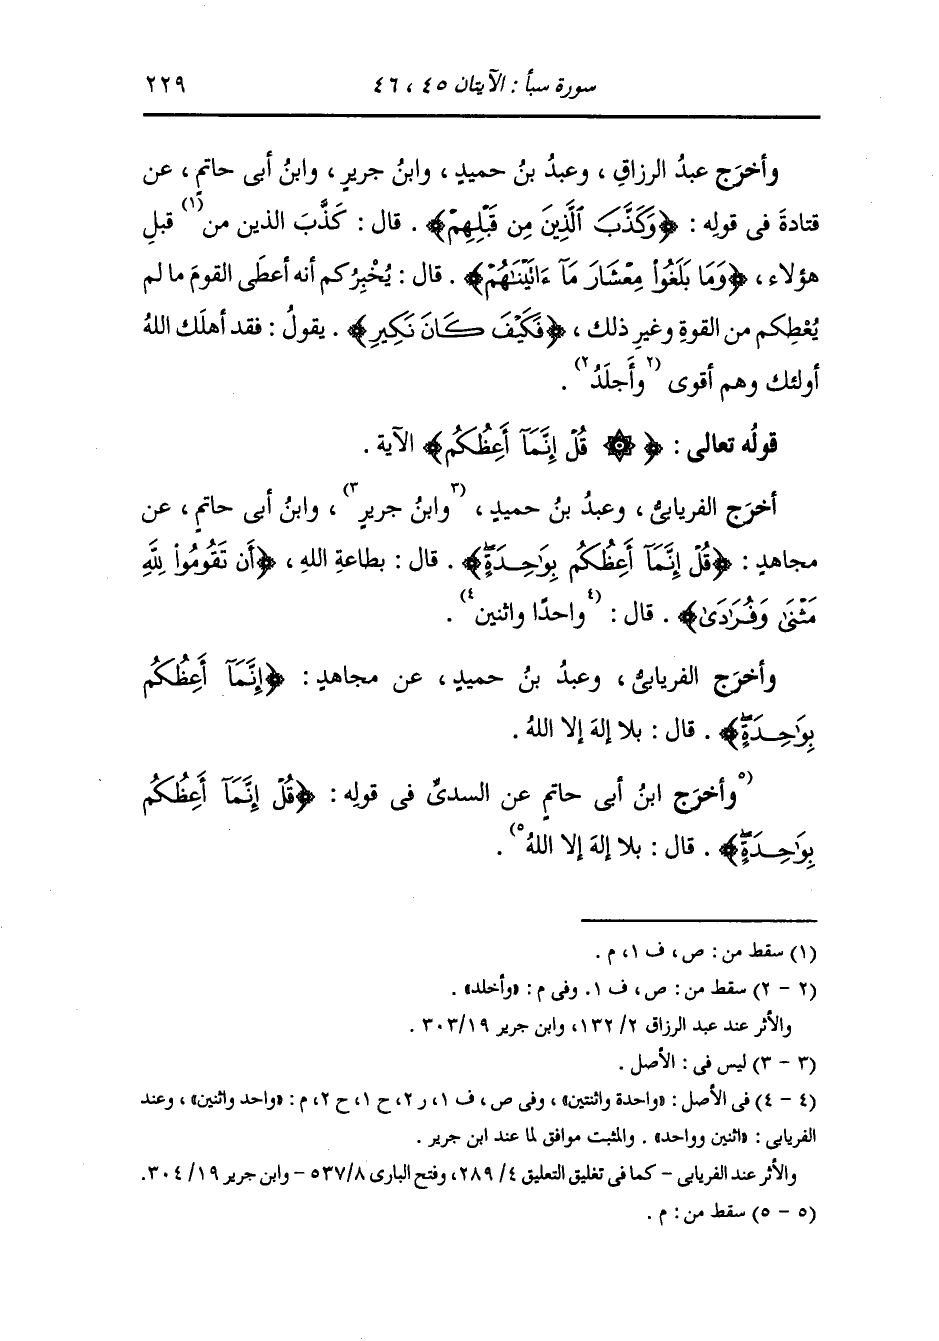 سورة سبأ : الآيتان ٤٥ ، ٤٦ ٢٢٩
وأخرَج عبدُ الرزاقِ ، وعبدُ بنُ حميدٍ ، وابنُ جريرٍ ، وابنُ أبى حاتمٍ ، عن
قتادةَ فى قولِه : ﴿وَكَذَّبَ ٱلَّذِينَ مِن قَبْلِهِمْ﴾ . قال : كَذَّبَ الذين من(١) قبلِ
هؤلاء ، ﴿وَمَا بَلَغُوا۟ مِعْشَارَ مَآ ءَاتَيْنَـٰهُمْ﴾ . قال : يُخْبِرُكم أنه أعطَى القومَ ما لم
يُعْطِكم من القوةِ وغيرِ ذلك ، ﴿فَكَيْفَ كَانَ نَكِيرِ﴾ . يقولُ : فقد أهلَك اللهُ
أولئك وهم أقوى (٢وأَجلَدُ٢) .
قولُه تعالى : ﴿ ۞ قُلْ إِنَّمَآ أَعِظُكُم﴾ الآية .
أخرَج الفريابىُّ ، وعبدُ بنُ حميدٍ ، (٣وابنُ جريرٍ٣) ، وابنُ أبى حاتمٍ ، عن
مجاهدٍ : ﴿قُلْ إِنَّمَآ أَعِظُكُم بِوَٰحِدَةٍۖ﴾ . قال : بطاعةِ اللهِ ، ﴿أَن تَقُومُوا۟ لِلَّهِ
مَثْنَىٰ وَفُرَٰدَىٰ﴾ . قال : (٤واحدًا واثنين٤) .
وأخرَج الفريابىُّ ، وعبدُ بنُ حميدٍ ، عن مجاهدٍ : ﴿إِنَّمَآ أَعِظُكُم
بِوَٰحِدَةٍۖ﴾ . قال : بلا إلهَ إلا اللهُ .
(٥وأخرَج ابنُ أبى حاتمٍ عن السدىِّ فى قولِه : ﴿قُلْ إِنَّمَآ أَعِظُكُم
بِوَٰحِدَةٍۖ﴾ . قال : بلا إلهَ إلا اللهُ٥) .
(١) سقط من : ص ، ف ١ ، م .
(٢ - ٢) سقط من : ص ، ف ١. وفى م : «وأخلد» .
والأثر عند عبد الرزاق ٢/ ١٣٢، وابن جرير ١٩/ ٣٠٣ .
(٣ - ٣) ليس فى : الأصل .
(٤ - ٤) فى الأصل : «واحدة واثنتين» ، وفى ص ، ف ١، ر ٢، ح ١، ح ٢، م : «واحد واثنين» ، وعند
الفريابى : «اثنين وواحد» . والمثبت موافق لما عند ابن جرير .
والأثر عند الفريابى - كما فى تغليق التعليق ٤/ ٢٨٩، وفتح البارى ٨/ ٥٣٧ - وابن جرير ١٩/ ٣٠٤.
(٥ - ٥) سقط من : م .